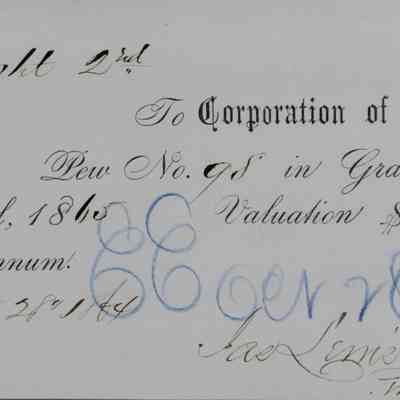 ght 2nd
To Corporation of
Pew No. 98 in Gra
l, 1865 Valuation $
nnum.
66 Oct 28
28th 1864
Jas